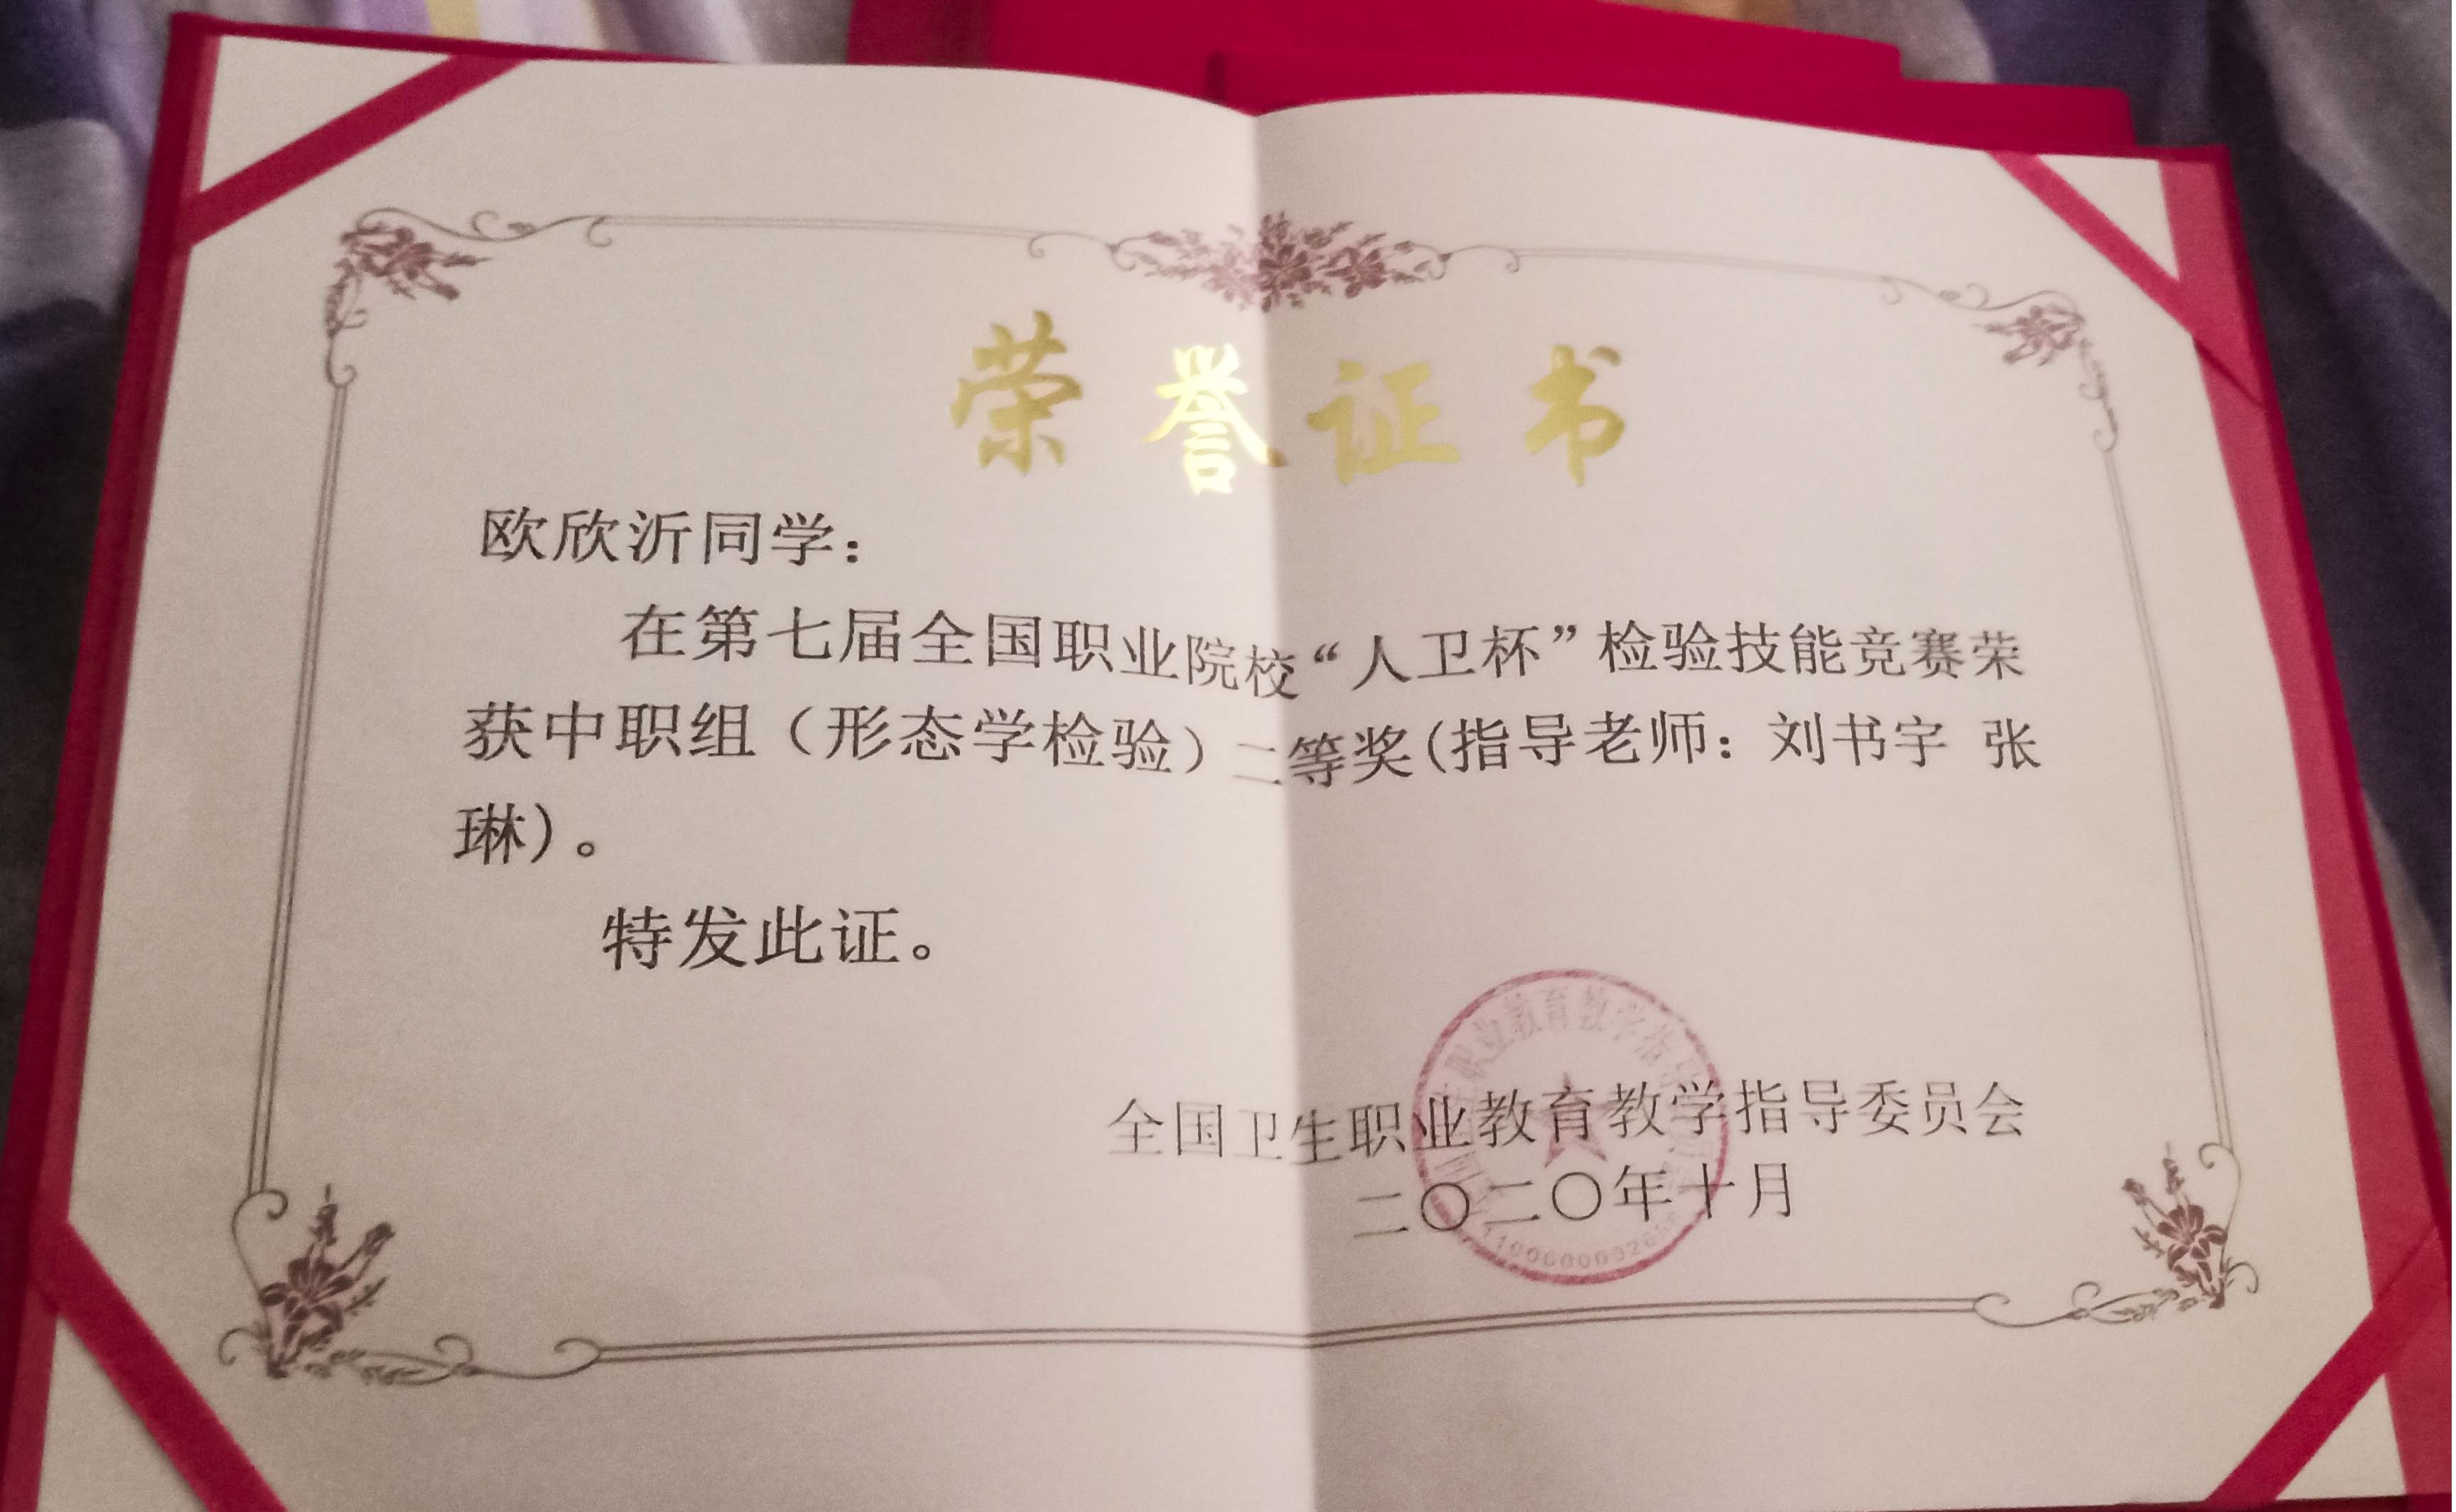 荣誉证书
欧欣沂同学：
在第七届全国职业院校“人卫杯”检验技能竞赛荣
获中职组（形态学检验）二等奖(指导老师：刘书宇 张
琳)。
特发此证。
全国卫生职业教育教学指导委员会
二〇二〇年十月